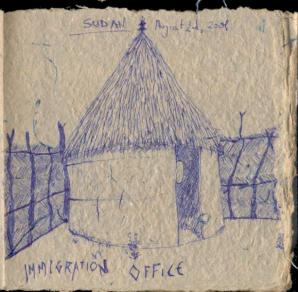 SUDAN August 2nd, 2008
IMMIGRATION OFFICE